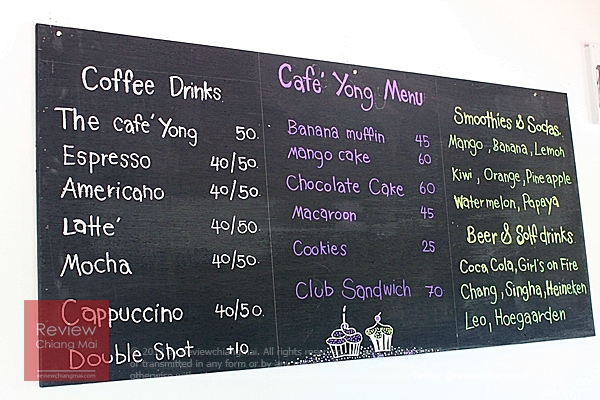 Coffee Drinks.
The café Yong 50.
Espresso 40/50.
Americano 40/50.
Latté 40/50.
Mocha 40/50.
Cappuccino 40/50.
Double Shot +10.
Café Yong Menu
Banana muffin 45
Mango cake 60
Chocolate Cake 60
Macaroon 45
Cookies 25
Club Sandwich 70
Smoothies & Sodas.
Mango, Banana, Lemoh
Kiwi, Orange, Pineapple
Watermelon, Papaya
Beer & Solf drinks.
Coca Cola, Girl's on Fire
Chang, Singha, Heineken
Leo, Hoegaarden
Review
Chiang Mai
reviewchiangmai.com
reviewchiangmai. All rights
or transmitted in any form or by
otherwise